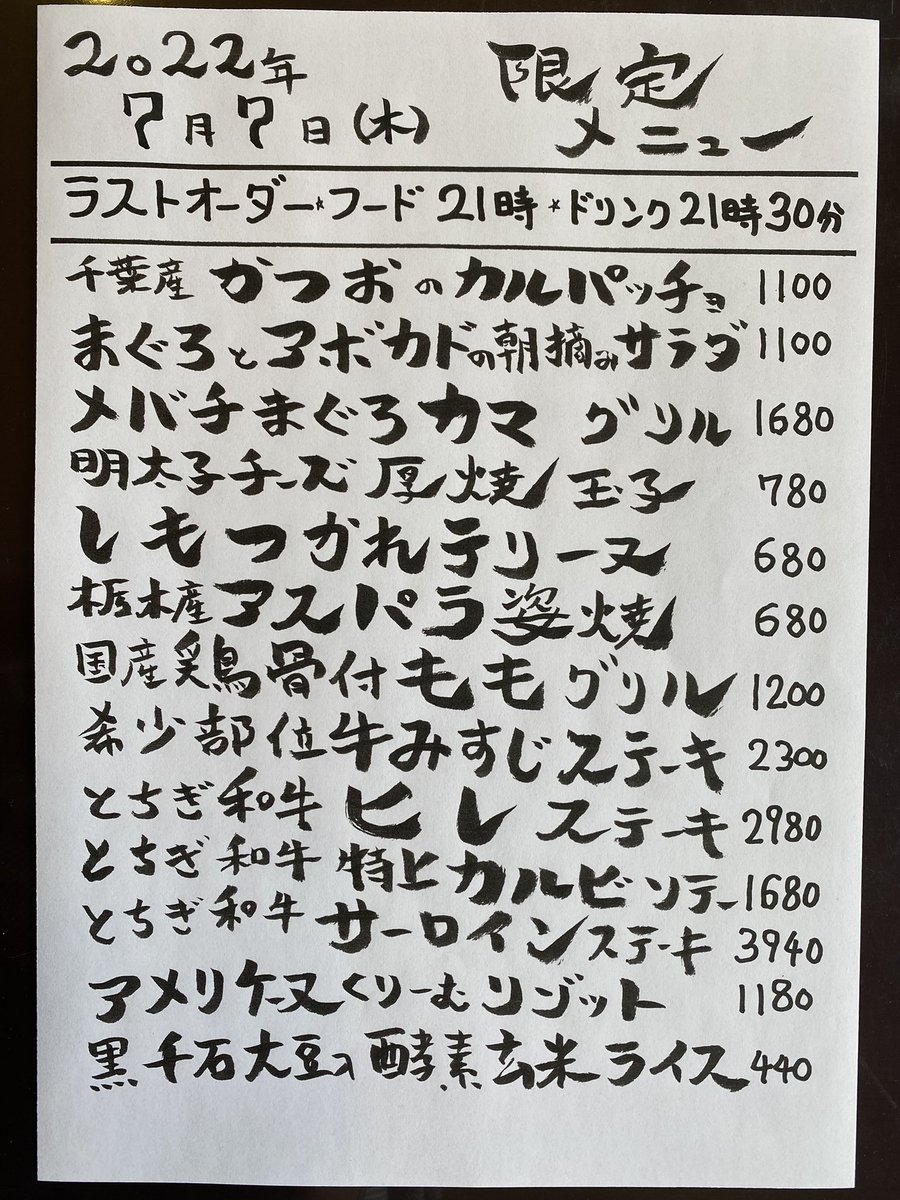 2022年
7月7日(木)
限定
メニュー
ラストオーダー☆フード 21時☆ドリンク21時30分
千葉産 かつおのカルパッチョ 1100
まぐろとアボカドの朝摘みサラダ 1100
メバチまぐろカマ グリル 1680
明太子チーズ厚焼玉子 780
しもつかれテリーヌ 680
栃木産アスパラ姿焼 680
国産鶏骨付ももグリル 1200
希少部位牛みすじステーキ 2300
とちぎ和牛 ヒレステーキ 2980
とちぎ和牛 特上カルビソテー 1680
とちぎ和牛 サーロインステーキ 3940
アメリケーヌくりーむリゾット 1180
黒千石大豆入酵素玄米ライス 440